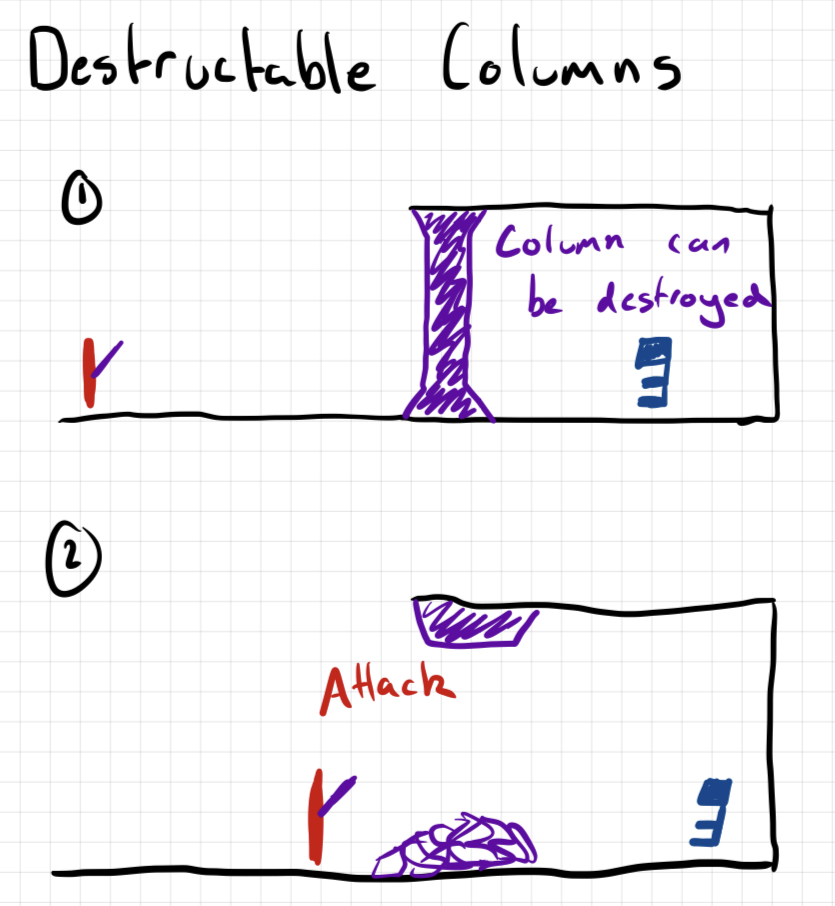 Destructable Columns
1
Column can
be destroyed
2
Attack